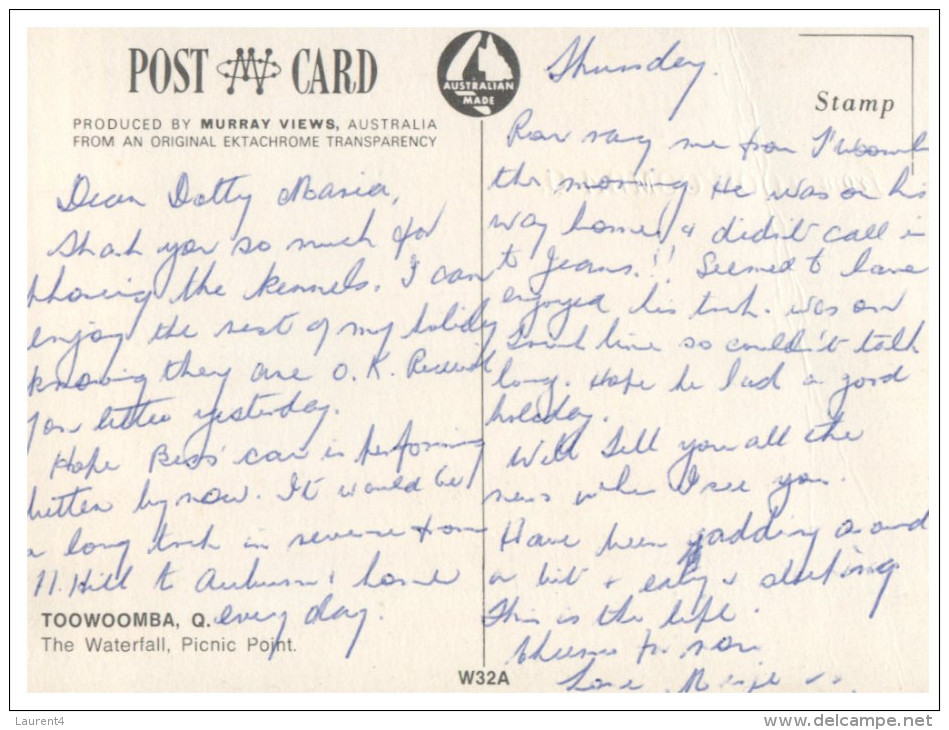 POST CARD
PRODUCED BY MURRAY VIEWS, AUSTRALIA
FROM AN ORIGINAL EKTACHROME TRANSPARENCY
AUSTRALIAN
MADE
Stamp
Dear Dotty Maria,
you so much for
the kennels. I can
enjoy the rest of my holiday
knowing they are O.K. Received
your letter yesterday.
Hope Bess' car is performing
better by now. It would be
a long trek in reverse from
H. Hill to Auburn & home
every day.
TOOWOOMBA, Q.
The Waterfall, Picnic Point.
W32A
Thursday.
Ron rang me from T'woomb
this morning. He was on his
way home, & didn't call in
to Jeans.!! Seemed to have
enjoyed his trek. was on
line so couldn't talk
long. Hope he had a good
holiday.
Will tell you all the
news when I see you.
Have been gadding around
a bit + eating +
This is the life.
Cheers for now
Love
Laurent4
www.delcampe.net